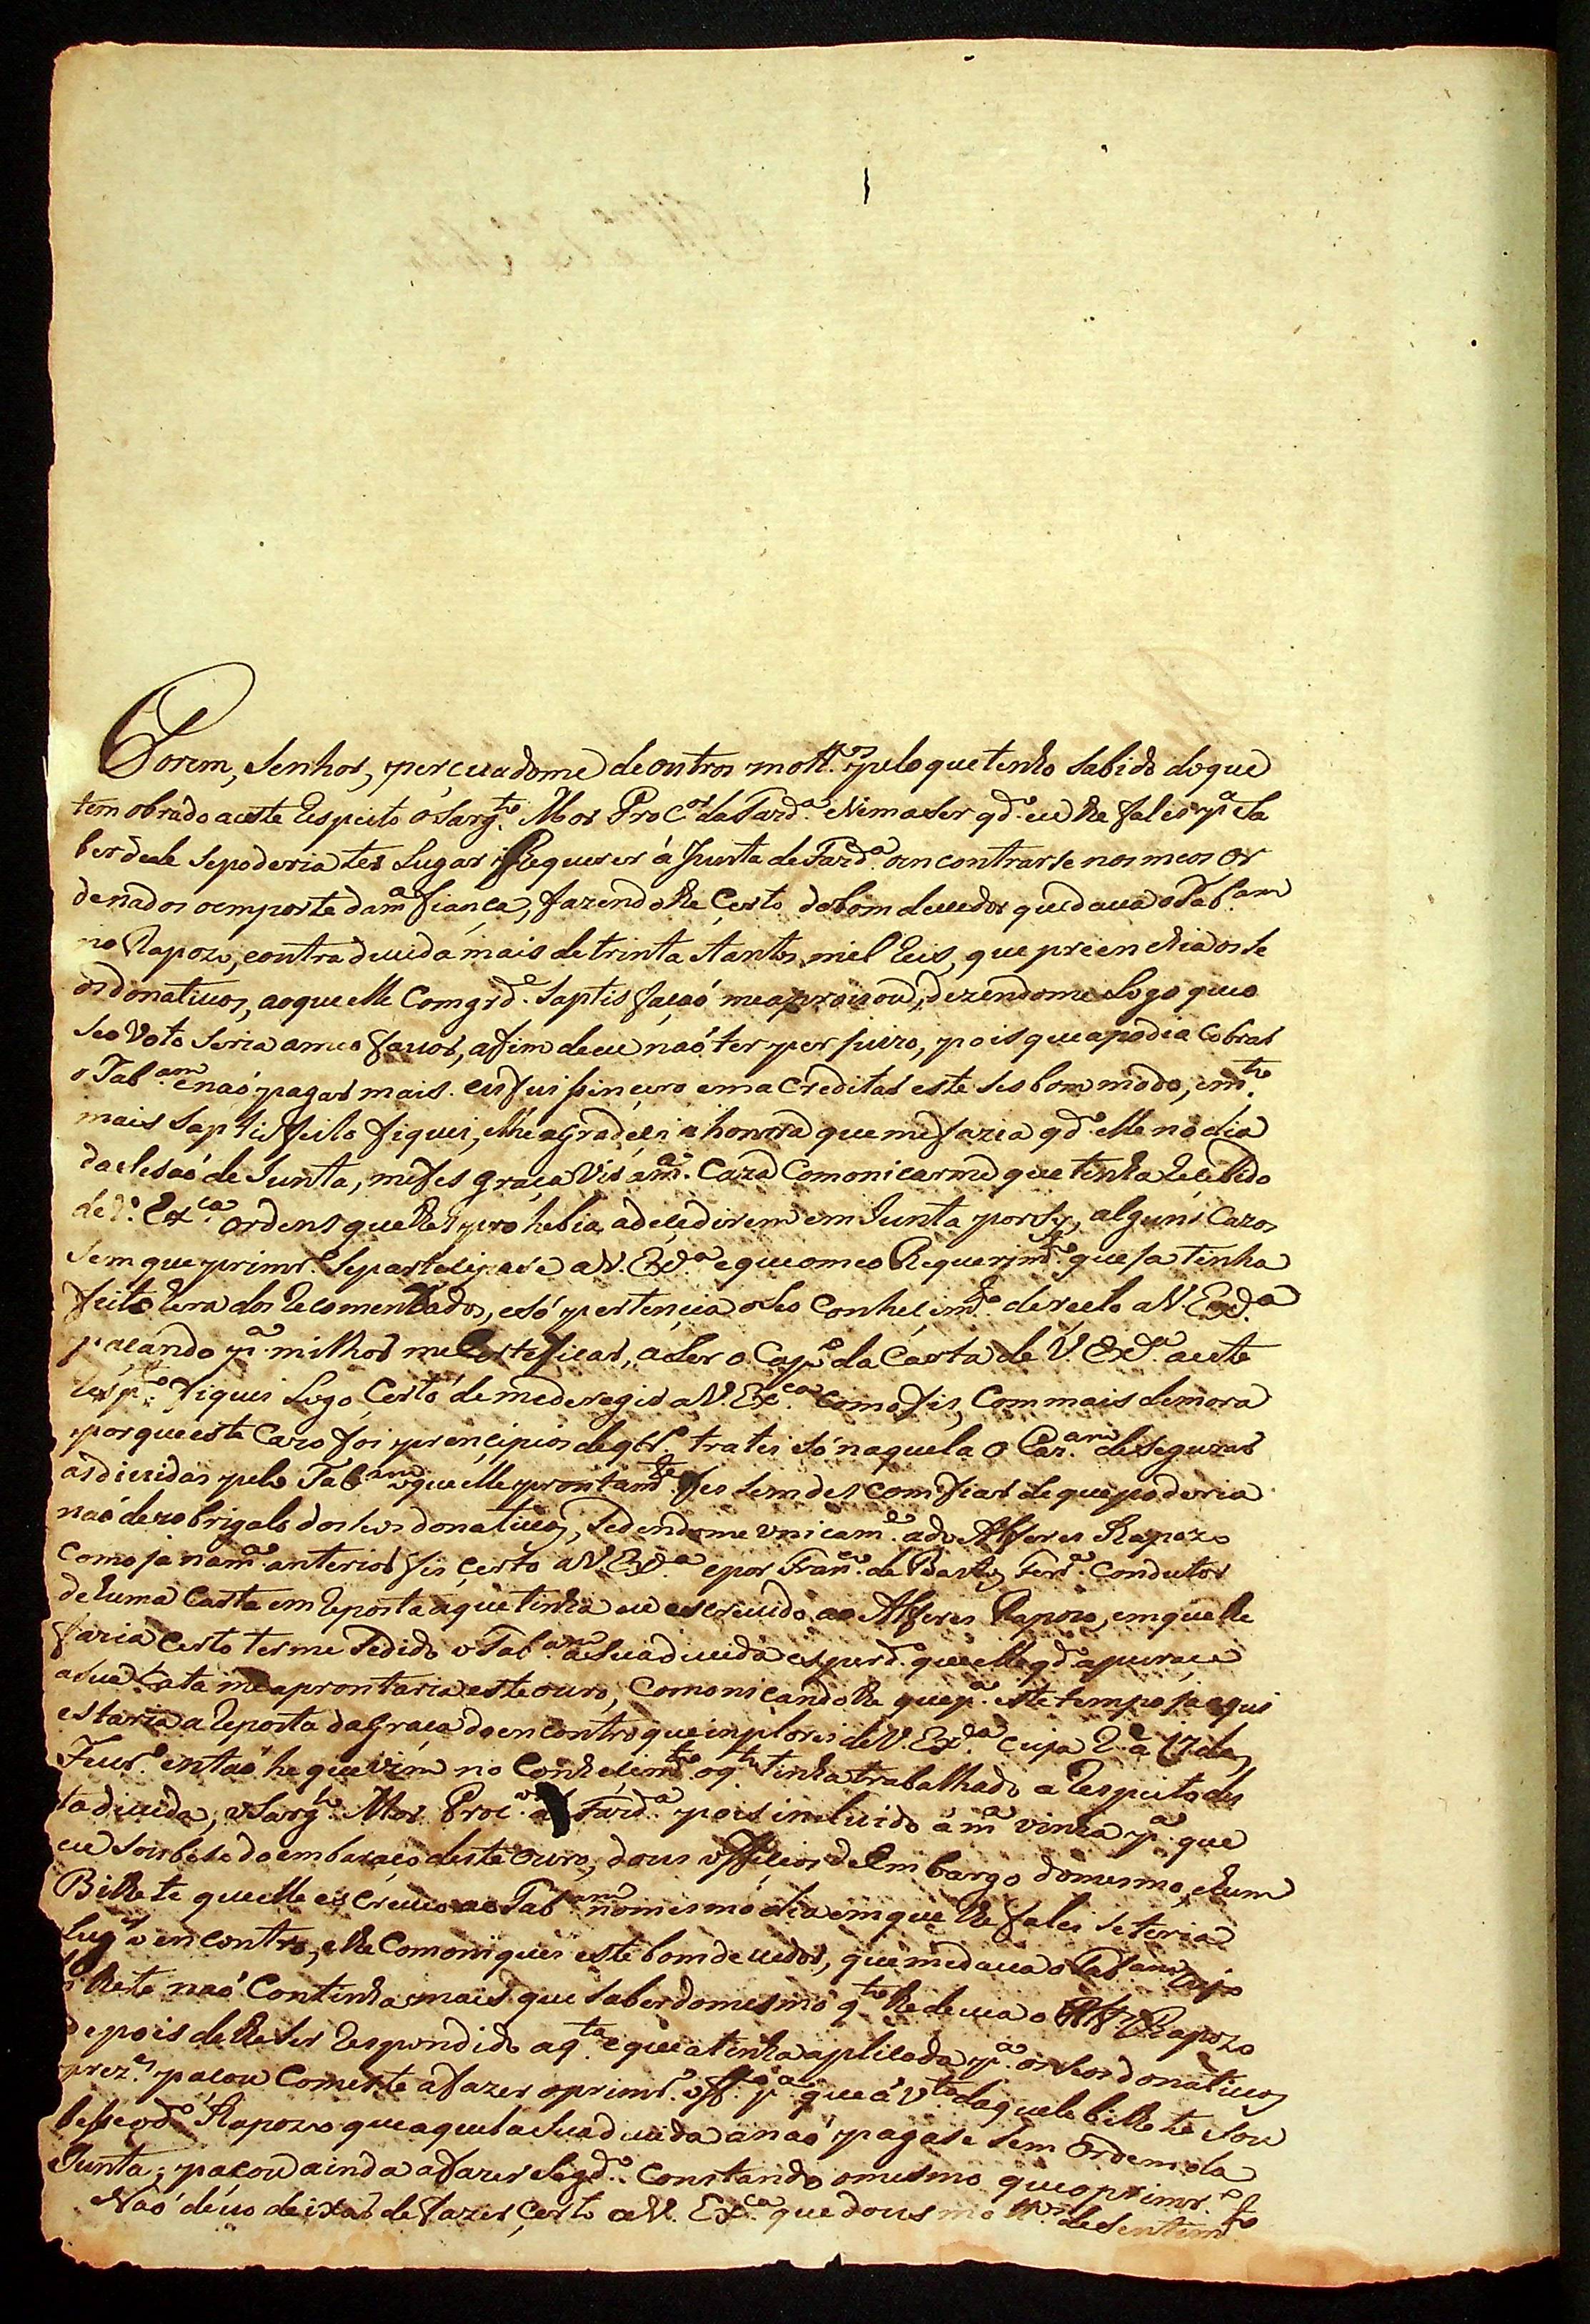 Porem, Senhor, percuadome de outros mott.os pelo que tenho sabido do que
tem obrado a este Respeito o Sarg.to Mor Proc.or da Fazd.a Nimaser qd.o eu lhe falei p.a Sa
ber dele se poderia ter Lugar Requerer á Junta de Fazd.a o encontrarse nos meos Or
denados o emporte da m.a fiança, fazendolhe Certo do bom devedor que dava o Tab.am
no Rapozo, contra devida mais de trinta e tantos mil Reis, que preenchia os se
os donativos, ao que elle Com grd.e Saptisfaçaõ me aprovou, dezendome Logo que o
Seo Voto Seria a meo favor, afim de eu naõ ter perjuizo, pois que a podia Cobrar
o Tab.am e naõ pagar mais. eu fui sinçero em aCreditar este seo bom modo, e m.to
mais Saptisfeito fiquei, e lhe agradeçi a honrra que me fazia qd.o elle no dia
da Sesaõ de Junta, me fes graça Vir a m.a Caza Comonicarme que tinha Recebido
de V. Ex.ca Ordens que lhes prohebia, adecedirem em Junta por sy, alguns Cazos
Sem que primr.o Separtecipase a V. Ex.a e que o meo Requerim.to que ja tinha
feito Hera dos Recomendados, e só pertençia o Seo Conheçim.to direeto a V. Ex.a
paçando p.a milhor me Certeficar, a Ler o Cap.o da Carta de V. Ex.a a este
Resp.to Fiquei Logo Certo de me deregir a V. Ex.ca Como fis, Com mais demora
porque este Cazo foi prençipios de 9br.o tratei só naquela oCaz.am de segurar
as dividas pelo Tab.am o que elle prontam.te fes sem desComfiar de que poderia
naõ dezobrigalo dos seos donativos, Sedendome unicam.te a do Alferes Rapozo
Como ja na m.a anterior fis çerto a V. Ex.a e por Fran.co de Bastos Ferr.a Condutor
de huma Carta em Reposta a que tinha eu escrevido ao Alferes Rapozo, em que lhe
fazia Certo terme Sedido o Tab.am a Sua devida e Segurd.e que elle qd.o apuraçe
a Sua Cata me aprontaria este ouro, Comonicandolhe que p.a este tempo ja aqui
estaria a Reposta da Graça do encontro que implorei de V. Ex.a cuja R. a 17 de
Fevr.o entaõ he que vim no Conheçim.to o q.to tinha trabalhado a Respeito des
ta divida, o Sarg.to Mor Proc.or da Fazd.a pois incluido á m.a vinha p.a que
eu Soubese do embaraço deste Ouro, dous offiçios de Embargo do mesmo, e hum
Bilhete que elle esCreveo ao Tab.am no mesmo dia em que lhe falei se teria
lug.r o encontro, e lhe Comoniquei este bom devedor, que me dava o Tab.am cujo
bilhete naõ Continha mais que saber do mesmo q.to lhe devia o Alf.es Rapozo
depois de lhe ser Respondido a q.ta e que a tinha aplicada p.a os Seos donativos
prez.es paçou Comeste a fazer o primr.o off.o p.a que á V.ta daquele bilhete Sou
beçe o d.o Rapozo que aquela sua devida a naõ pagase sem Ordem da
Junta; paçou ainda a fazer Segd.o Constando o mesmo que o primr.o
Naõ devo deixar de fazer çerto a V. Ex.ca que dous mott.os de sentim.to